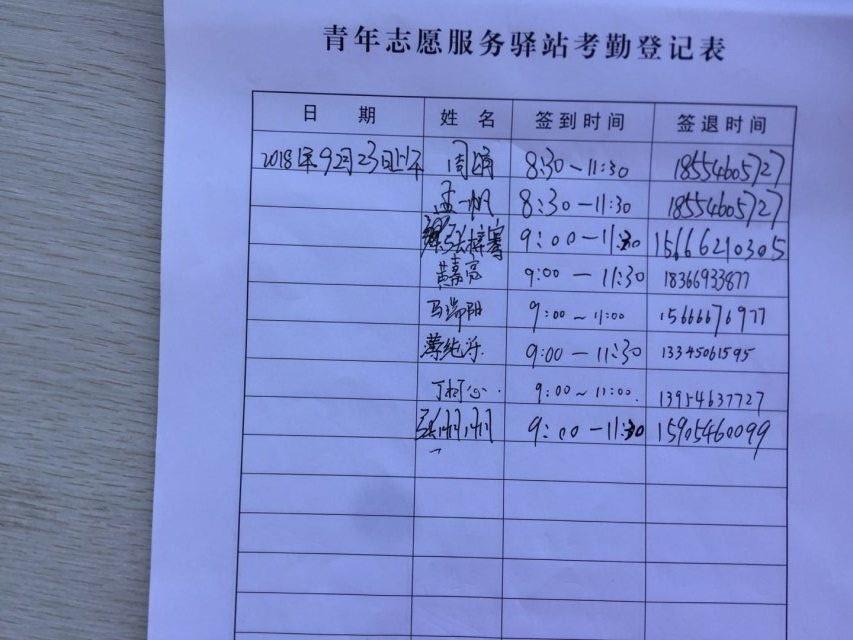 青年志愿服务驿站考勤登记表
日 期 姓 名 签到时间 签退时间
2018年9月23日上午 周涌 8:30~11:30 18554605727
孟一帆 8:30-11:30 18554605727
张梓骞 9:00-11:30 15666210305
黄嘉亮 9:00-11:30 18366933877
马瑞阳 9:00~11:00 15666676977
薄纯泺 9:00-11:30 13345061595
丁柯心 9:00~11:00. 13954637727
张州州 9:00-11:30 15905460099